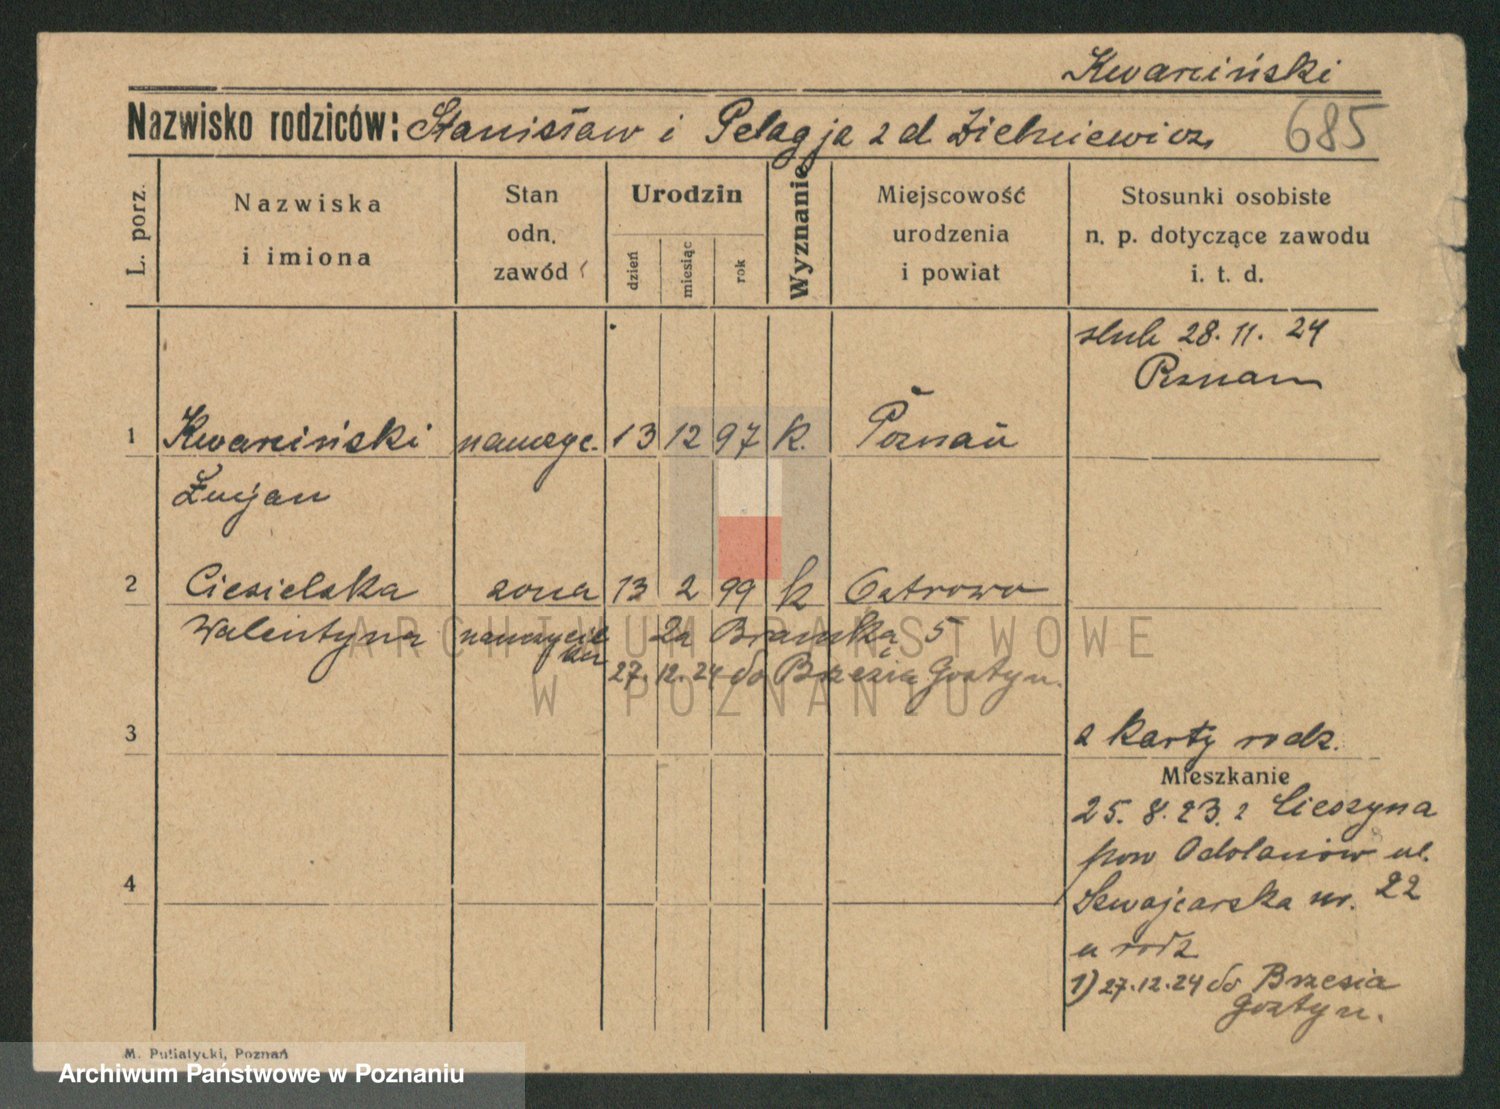 Kwarciński
Nazwisko rodziców: Stanisław i Pelagja z d Zielniewicz
685
L. porz.
Nazwiska
i imiona
Stan
odn.
zawód
Urodzin
dzień
miesiąc
rok
Wyznanie
Miejscowość
urodzenia
i powiat
Stosunki osobiste
n. p. dotyczące zawodu
i. t. d.
slub 28. 11. 24
Poznan
1 Kwarciński nauczyc. 13 12 97 k. Poznań
Łucjan
2 Ciesielska zona 13 2 99 k Ostrowo
Walentyna nauczyciel 2a Bramka 5
27. 12. 24 do Brzezia Gostyn.
ARCHIWUM PAŃSTWOWE
W POZNANIU
3
z karty rodz.
Mieszkanie
25. 8. 23. z Cieszyna
pow Odolanów ul.
4
Szwajcarska nr. 22
u rodz
1) 27.12.24 do Brzesia
Gostyn.
M. Putiatycki, Poznań
Archiwum Państwowe w Poznaniu